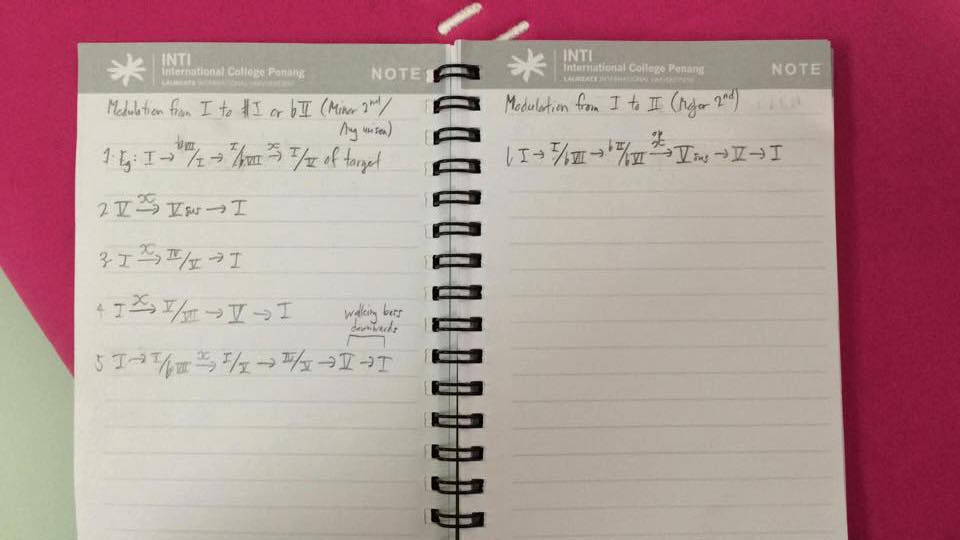 INTI
International College Penang
LAUREATE INTERNATIONAL UNIVERSITIES
NOTE
Modulation from I to #I or bII (Minor 2nd/
Aug unison)
1. Eg: I → bVII/I → I/bVII x→ I/V of target
2 V x→ Vsus → I
3. I x→ IV/V → I
4 I x→ V/VII → V → I
walking bass
downwards
5 I → I/bVII x→ I/V → IV/V → V → I
INTI
International College Penang
LAUREATE INTERNATIONAL UNIVERSITIES
NOTE
Modulation from I to II (Major 2nd)
1. I → I/bVII → bII/bVI x→ Vsus → V → I